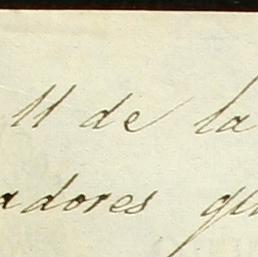 11 de la
adores que